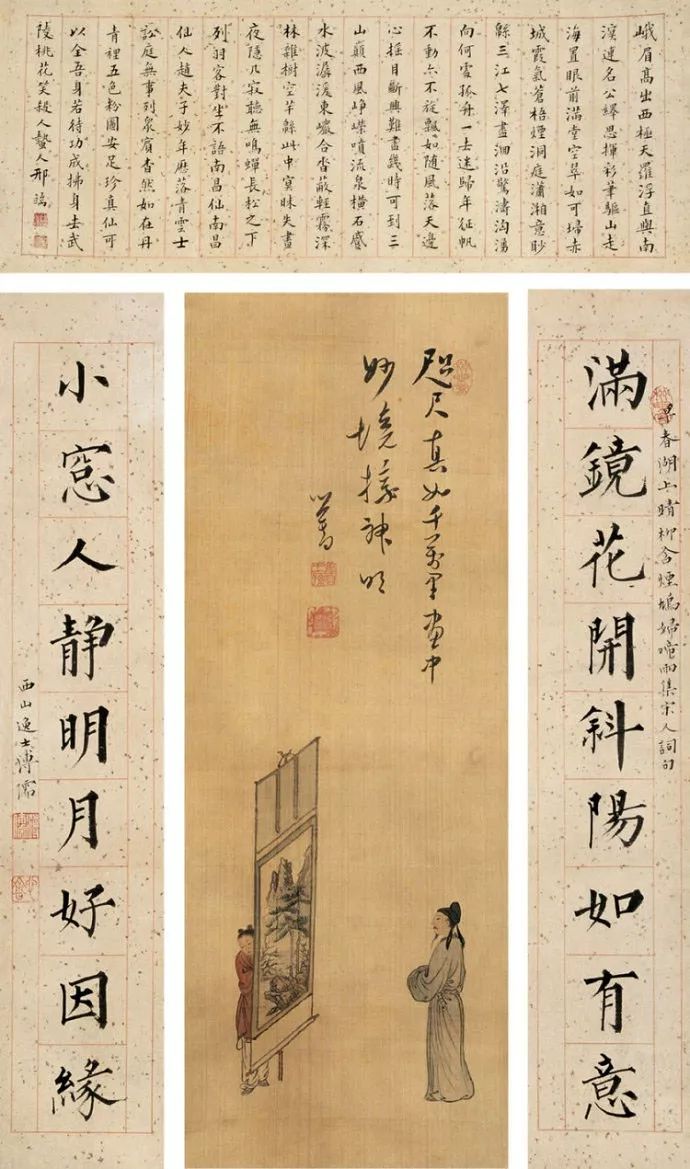 峨眉高出西極天羅浮直與南
溟連名公繹思揮彩筆驅山走
海置眼前滿堂空翠如可埽赤
城霞氣蒼梧煙洞庭瀟湘意眇
緜三江七澤盡洄沿驚濤洶湧
向何處孤舟一去迷歸年征帆
不動亦不旋飄如隨風落天邊
心搖目斷興難盡幾時可到三
山巔西風崢嶸噴流泉橫石蹙
水波潺湲東巘合沓蔽輕霧深
林雜樹空芊緜此中冥昧失晝
夜隱几寂聽無鳴蟬長松之下
列羽客對坐不語南昌仙南昌
仙人趙夫子妙年歷落青雲士
訟庭無事列衆賓杳然如在丹
青裡五色粉圖安足珍真仙可
以全吾身若待功成拂身去武
陵桃花笑殺人蟄人邢端
早春湖上晴柳含煙鳩婦啼雨集宋人詞句
滿鏡花開斜陽如有意
咫尺真如千萬里畫中
妙境接神明
心畬
小窓人靜明月好因緣
西山逸士溥儒